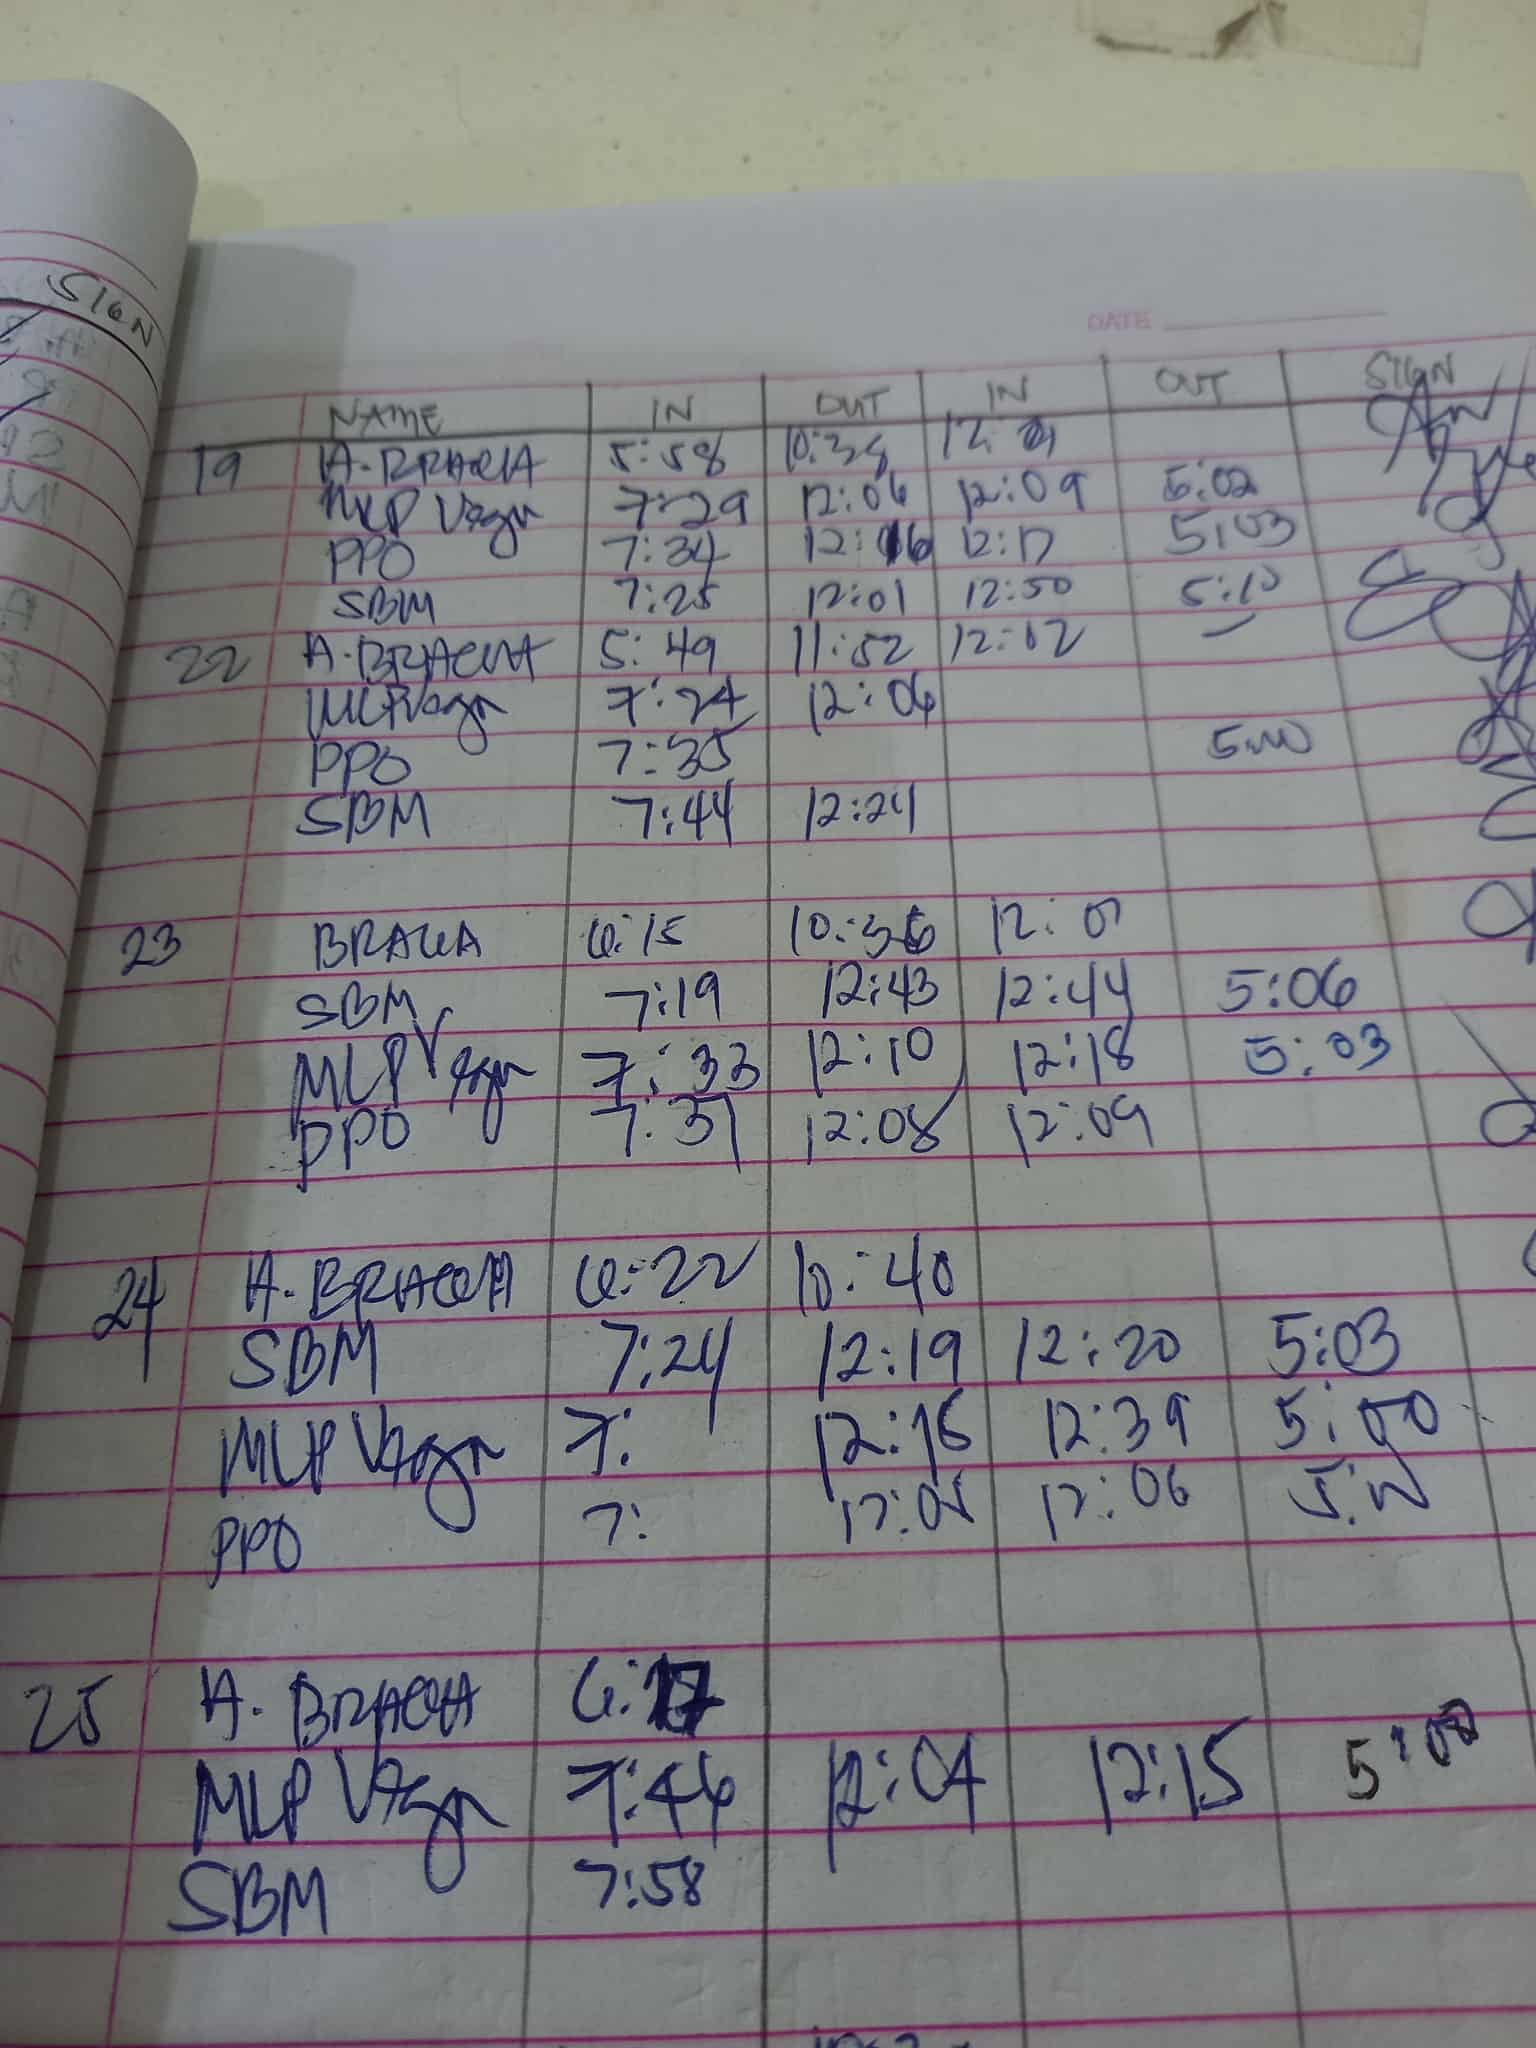 SIGN
DATE
NAME IN OUT IN OUT SIGN
19 5:58
7:29 12:06 12:09 5:02
PPO 7:34 12:17 5:03
SBM 7:25 12:01 12:50 5:10
22 5:49 11:52 12:02 –
7:24 12:06
PPO 7:35 5:00
SBM 7:44 12:24
23 6:15 10:36 12:01
SBM 7:19 12:43 12:44 5:06
MLP 7:33 12:10 12:18 5:03
PPO 7:31 12:08 12:09
24 6:22 10:40
SBM 7:24 12:19 12:20 5:03
MLP 7: 12:16 12:39 5:00
PPO 7: 12:05 12:06 5:00
25 6:17
MLP 7:46 12:04 12:15 5:00
SBM 7:58